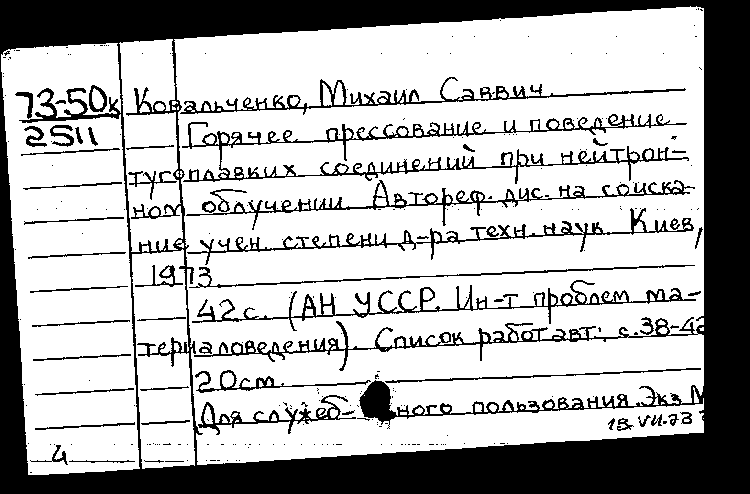 73-50к Ковальченко, Михаил Саввич.
2511 Горячее прессование и поведение
тугоплавких соединений при нейтрон-
ном облучении. Автореф. дис. на соиска-
ние учен. степени д-ра техн. наук. Киев,
1973.
42 с. (АН УССР. Ин-т проблем ма-
териаловедения). Список работ авт.: с. 38-42
20см.
Для служеб- ного пользования. Экз
VII-73
4